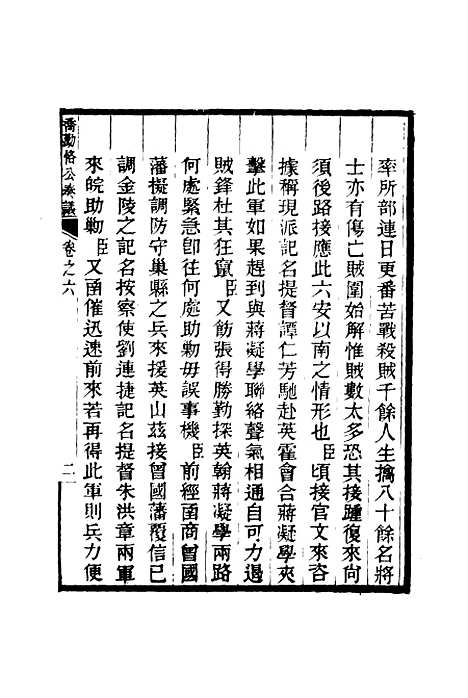 率所部連日更番苦戰殺賊千餘人生擒八十餘名將
士亦有傷亡賊圍始解惟賊數太多恐其接踵復來向
須後路接應此六安以南之情形也臣頃接官文來咨
據稱現派記名提督譚仁芳馳赴英霍會合蔣凝學夾
擊此軍如果趕到與蔣凝學聯絡聲氣相通自可力遏
賊鋒杜其狂竄臣又飭張得勝勤探英翰蔣凝學兩路
何處緊急卽往何處助勦毋誤事機臣前經函商曾國
藩擬調防守巢縣之兵來援英山茲接曾國藩覆信已
調金陵之記名按察使劉連捷記名提督朱洪章兩軍
來皖助勦臣又函催迅速前來若再得此軍則兵力便
喬勤恪公奏議
卷之六
二